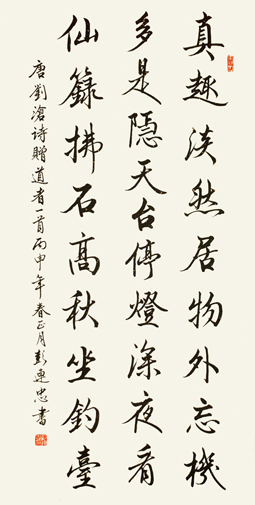 真趣淡然居物外忘機
多是隱天台停燈深夜看
仙籙拂石高秋坐釣臺
唐劉滄詩贈道者一首丙申年春正月彭連忠書